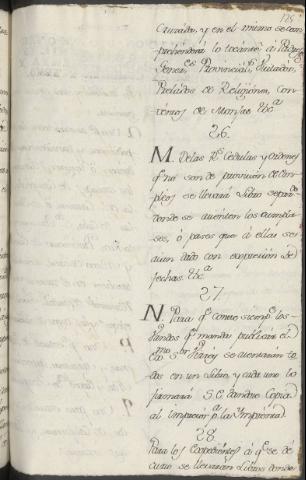 125
Cruzada, y en el mismo se com
prehenderá lo tocante á Padres
Gener.es Provincial.s Visitador,
Prelados de Religiones, Con
ventos de Monjas &c.a
26.
M. Delas R.s Cedulas, y ordenes
q.e no son de provision de em
pleos se llevará Libro separado
donde se asienten los cumpla
ses, ó pases que á ellas se
aian dado con expresion de
fechas. &c.a
27.
N. Para q.e conste siempre los
Vandos q.e manda publicar el
Ex.mo S.or Virrey se asentarán to
dos en un Libro, y cada uno lo
firmará S.E. dandose Copia
al Impresor p.a la Imprenta
28.
Para los Expedientes á q.e se dé
curso se llevarán Libros donde